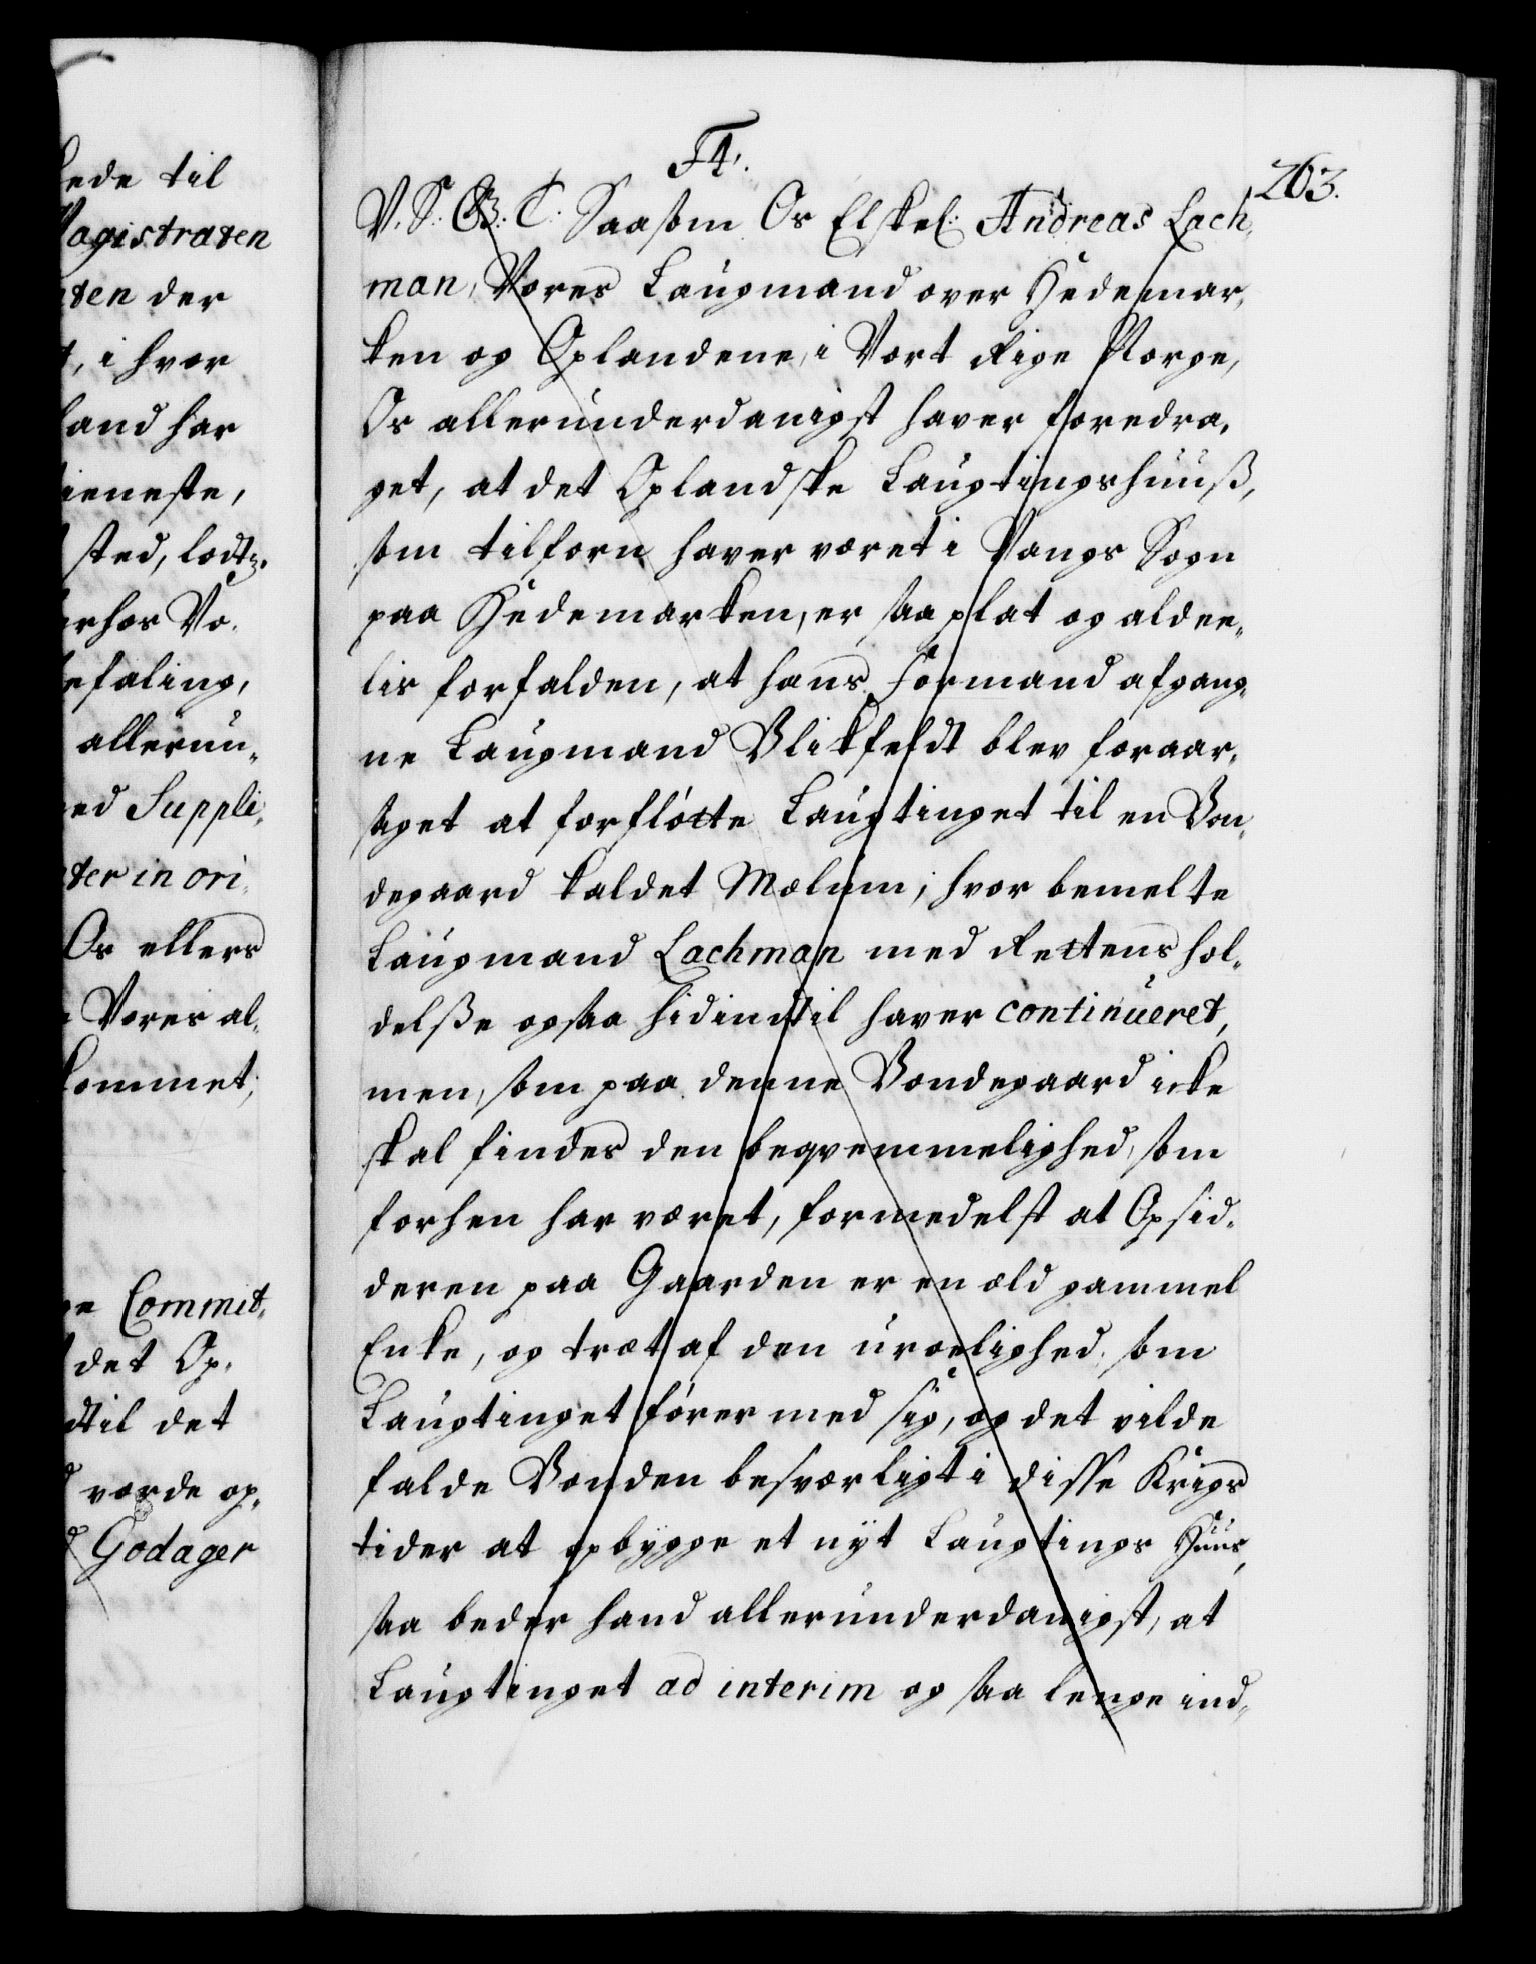 ede til
agistraten
ten der
, i hvor
and har
ieneste,
sted, lodtz.
rhos Vo.
efaling,
allerun„
ed Suppli„
ter in ori„
Os ellers
Vores al„
kommet,
ge Commit„
det Op„
til det
vorde op„
Godager
F4.
263.
V. S. G. T. Saasom Os Elskel: Andreas Lach„
man, Vores Laugmand over Hedemar„
ken og Oplandene, i Vort Rige Norge,
Os allerunderdanigst haver foredra„
get, at det Oplandske Laugtingshuuß,
som tilforn haver været i Vangs Sogn
paa Hedemarken, er saa plat og aldee„
lis forfalden, at hans Formand afgang„
ne Laugmand Blikfeldt blev foraar„
saget at forflötte Laugtinget til en Bon„
degaard kaldet Mælum, hvor bemelte
Laugmand Lachman med Rettens hol„
delße ogsaa hidindtil haver continueret,
men, som paa denne Bondegaard icke
skal findes den beqvemmelighed, som
forhen har været, formedelst at Opsid„
deren paa Gaarden er en old gammel
Enke, og træt af den uroelighed, som
Laugtinget förer med sig, og det vilde
falde Bonden besværligt i disse Krigs
tider at opbygge et nyt Laugtings Huus,
saa beder hand allerunderdanigst, at
Laugtinget ad interim og saa lenge ind„